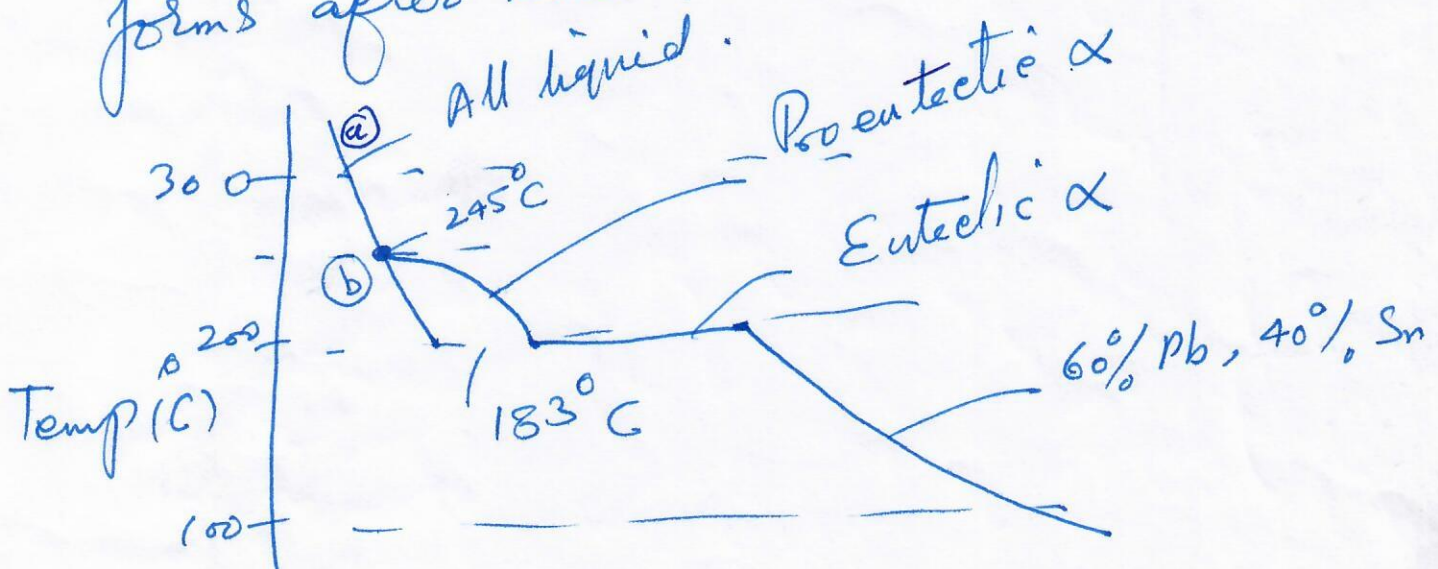 forms after
All liquid.
Proeutectic α
Eutectic α
ⓐ
300
245°C
ⓑ
200
Temp (°C)
183°C
60% Pb, 40% Sn
100